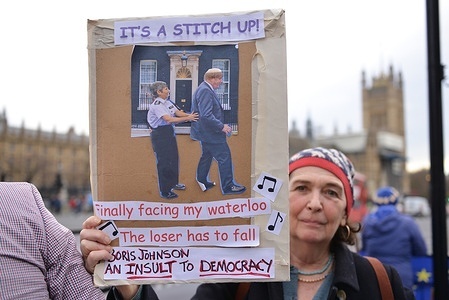 IT'S A STITCH UP!
Finally facing my waterloo
The loser has to fall
BORIS JOHNSON
AN INSULT TO DEMOCRACY